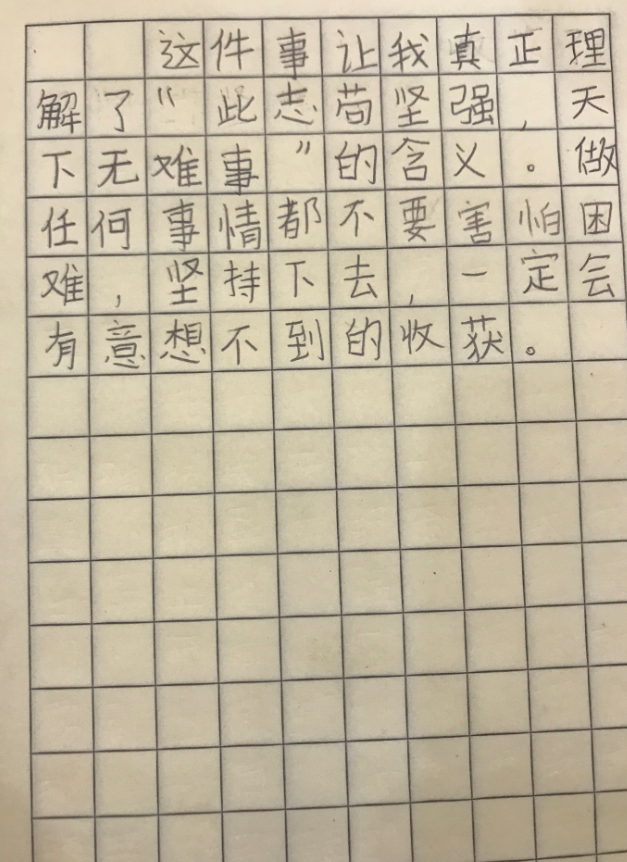 这件事让我真正理
解了“此志苟坚强,天
下无难事”的含义。做
任何事情都不要害怕困
难,坚持下去,一定会
有意想不到的收获。